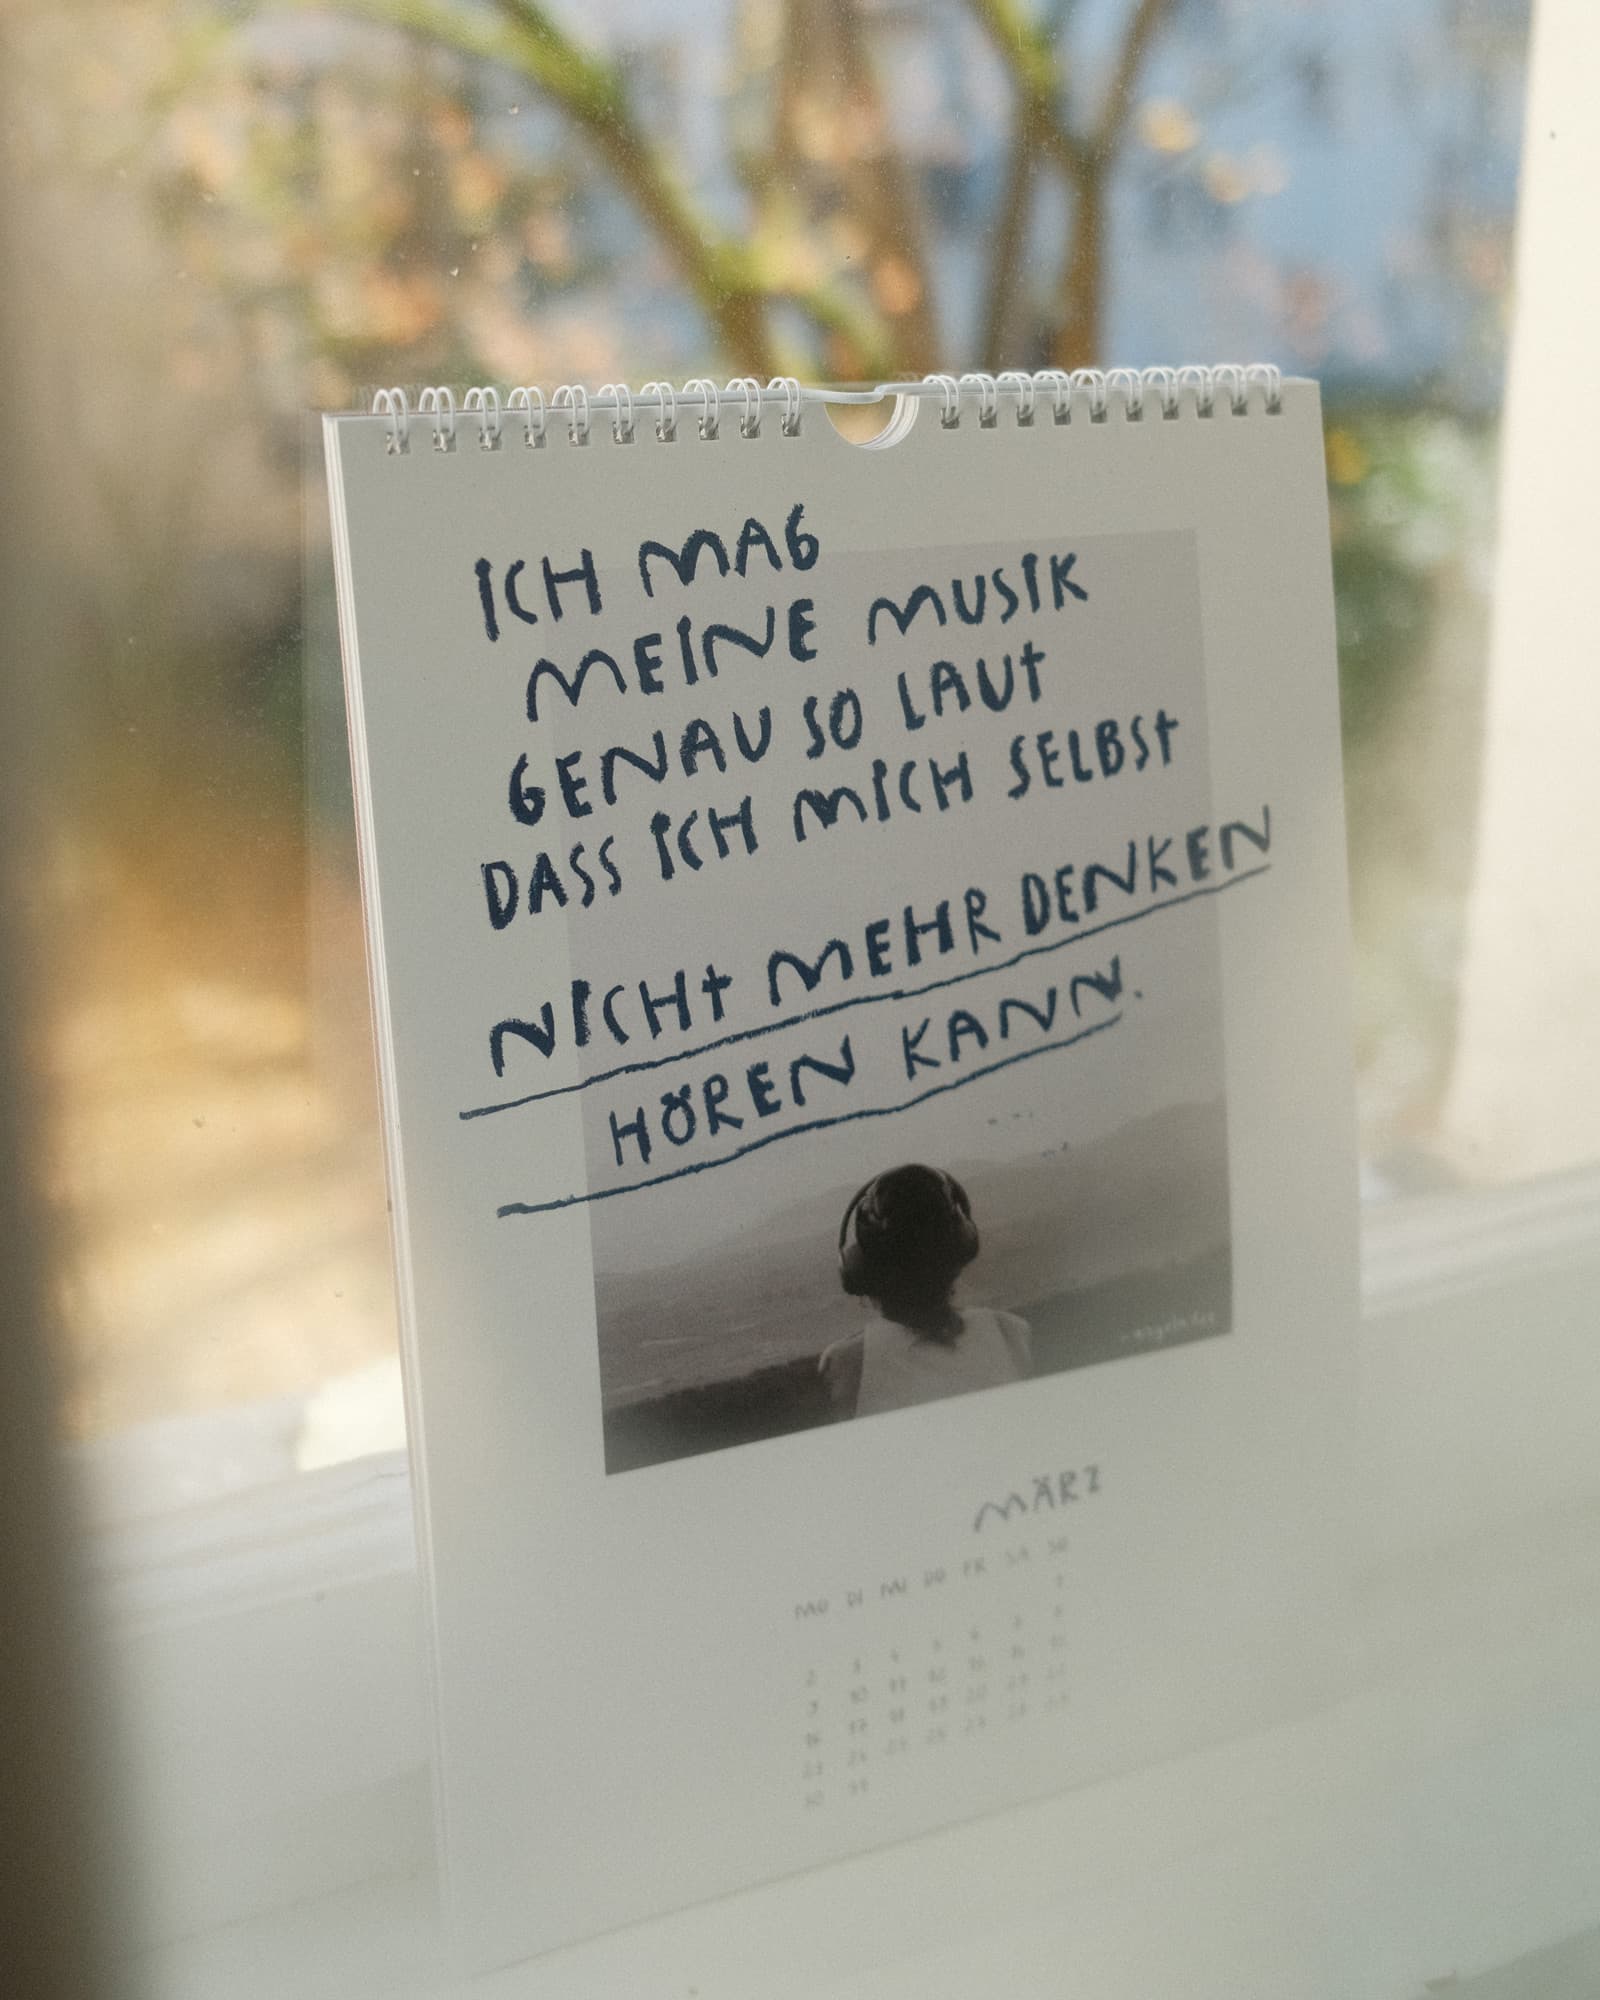 ICH MAG
MEINE MUSIK
GENAU SO LAUT
DASS ICH MICH SELBST
NICHT MEHR DENKEN
HÖREN KANN.
MÄRZ
MO DI MI DO FR SA SO
1
2 3 4 5 6 7 8
9 10 11 12 13 14 15
16 17 18 19 20 21 22
23 24 25 26 27 28 29
30 31